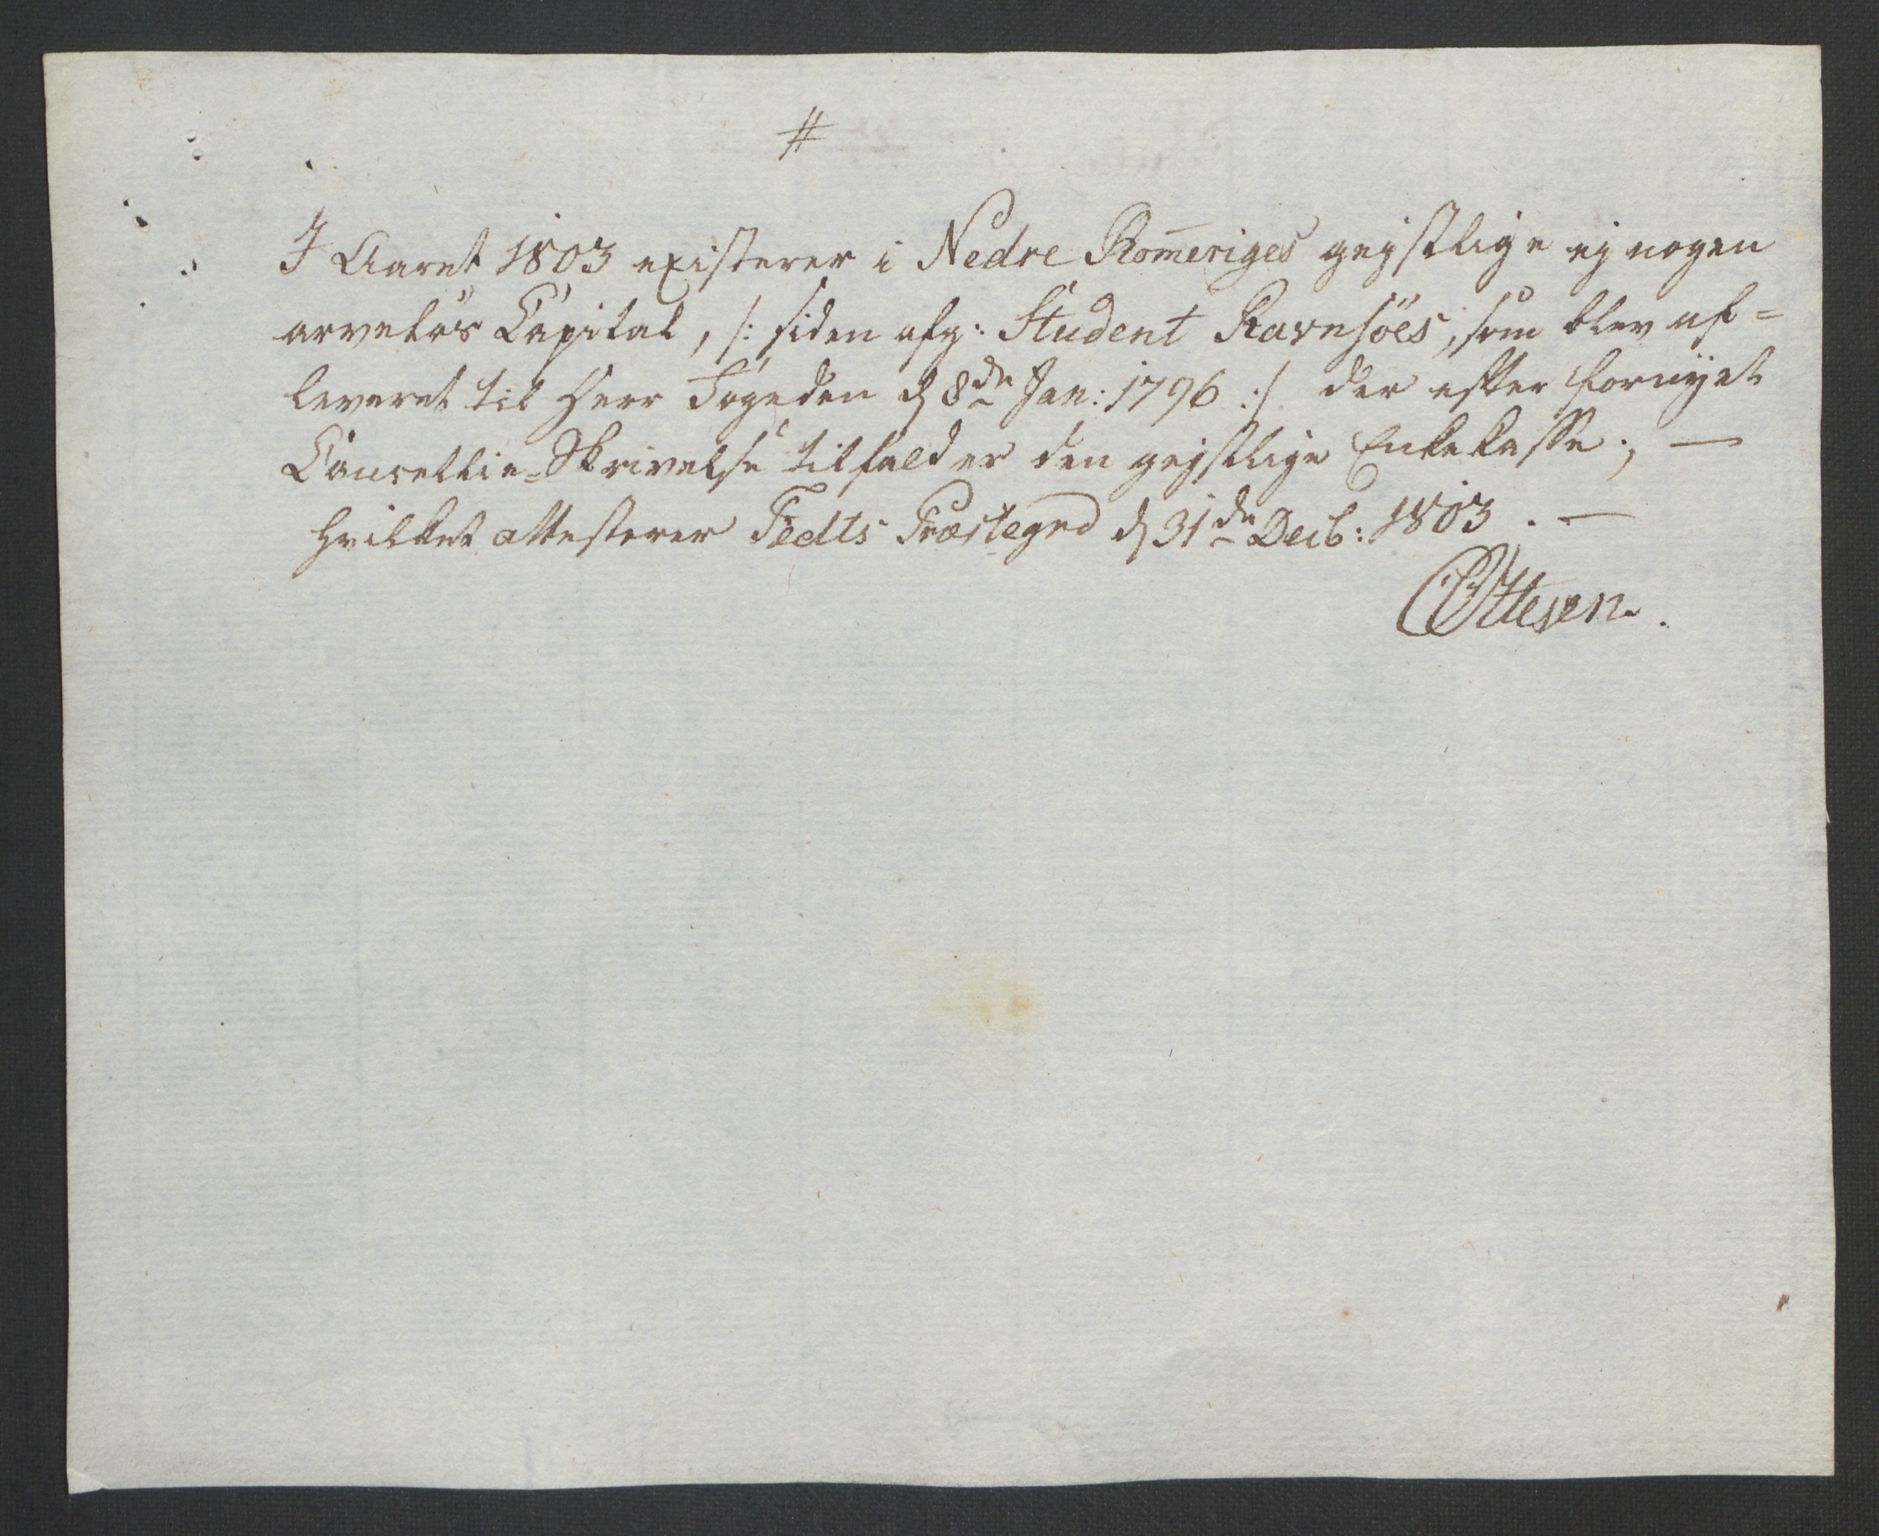 #
I Aaret 1803 existerer i Nedre Rom̄eriges gejstlige ej nogen
arveløs Capital, /: siden afg: Student Ravnsöes, som blev af-
leveret til Herr Fogeden d 8de Jan: 1796 :/ der efter fornyet
Cancellie-Skrivelse tilfalder den gejstlige Enkekasse; —
hvilket attesterer Fedts Præstegrd d 31de Decb: 1803. —
Ottesen.